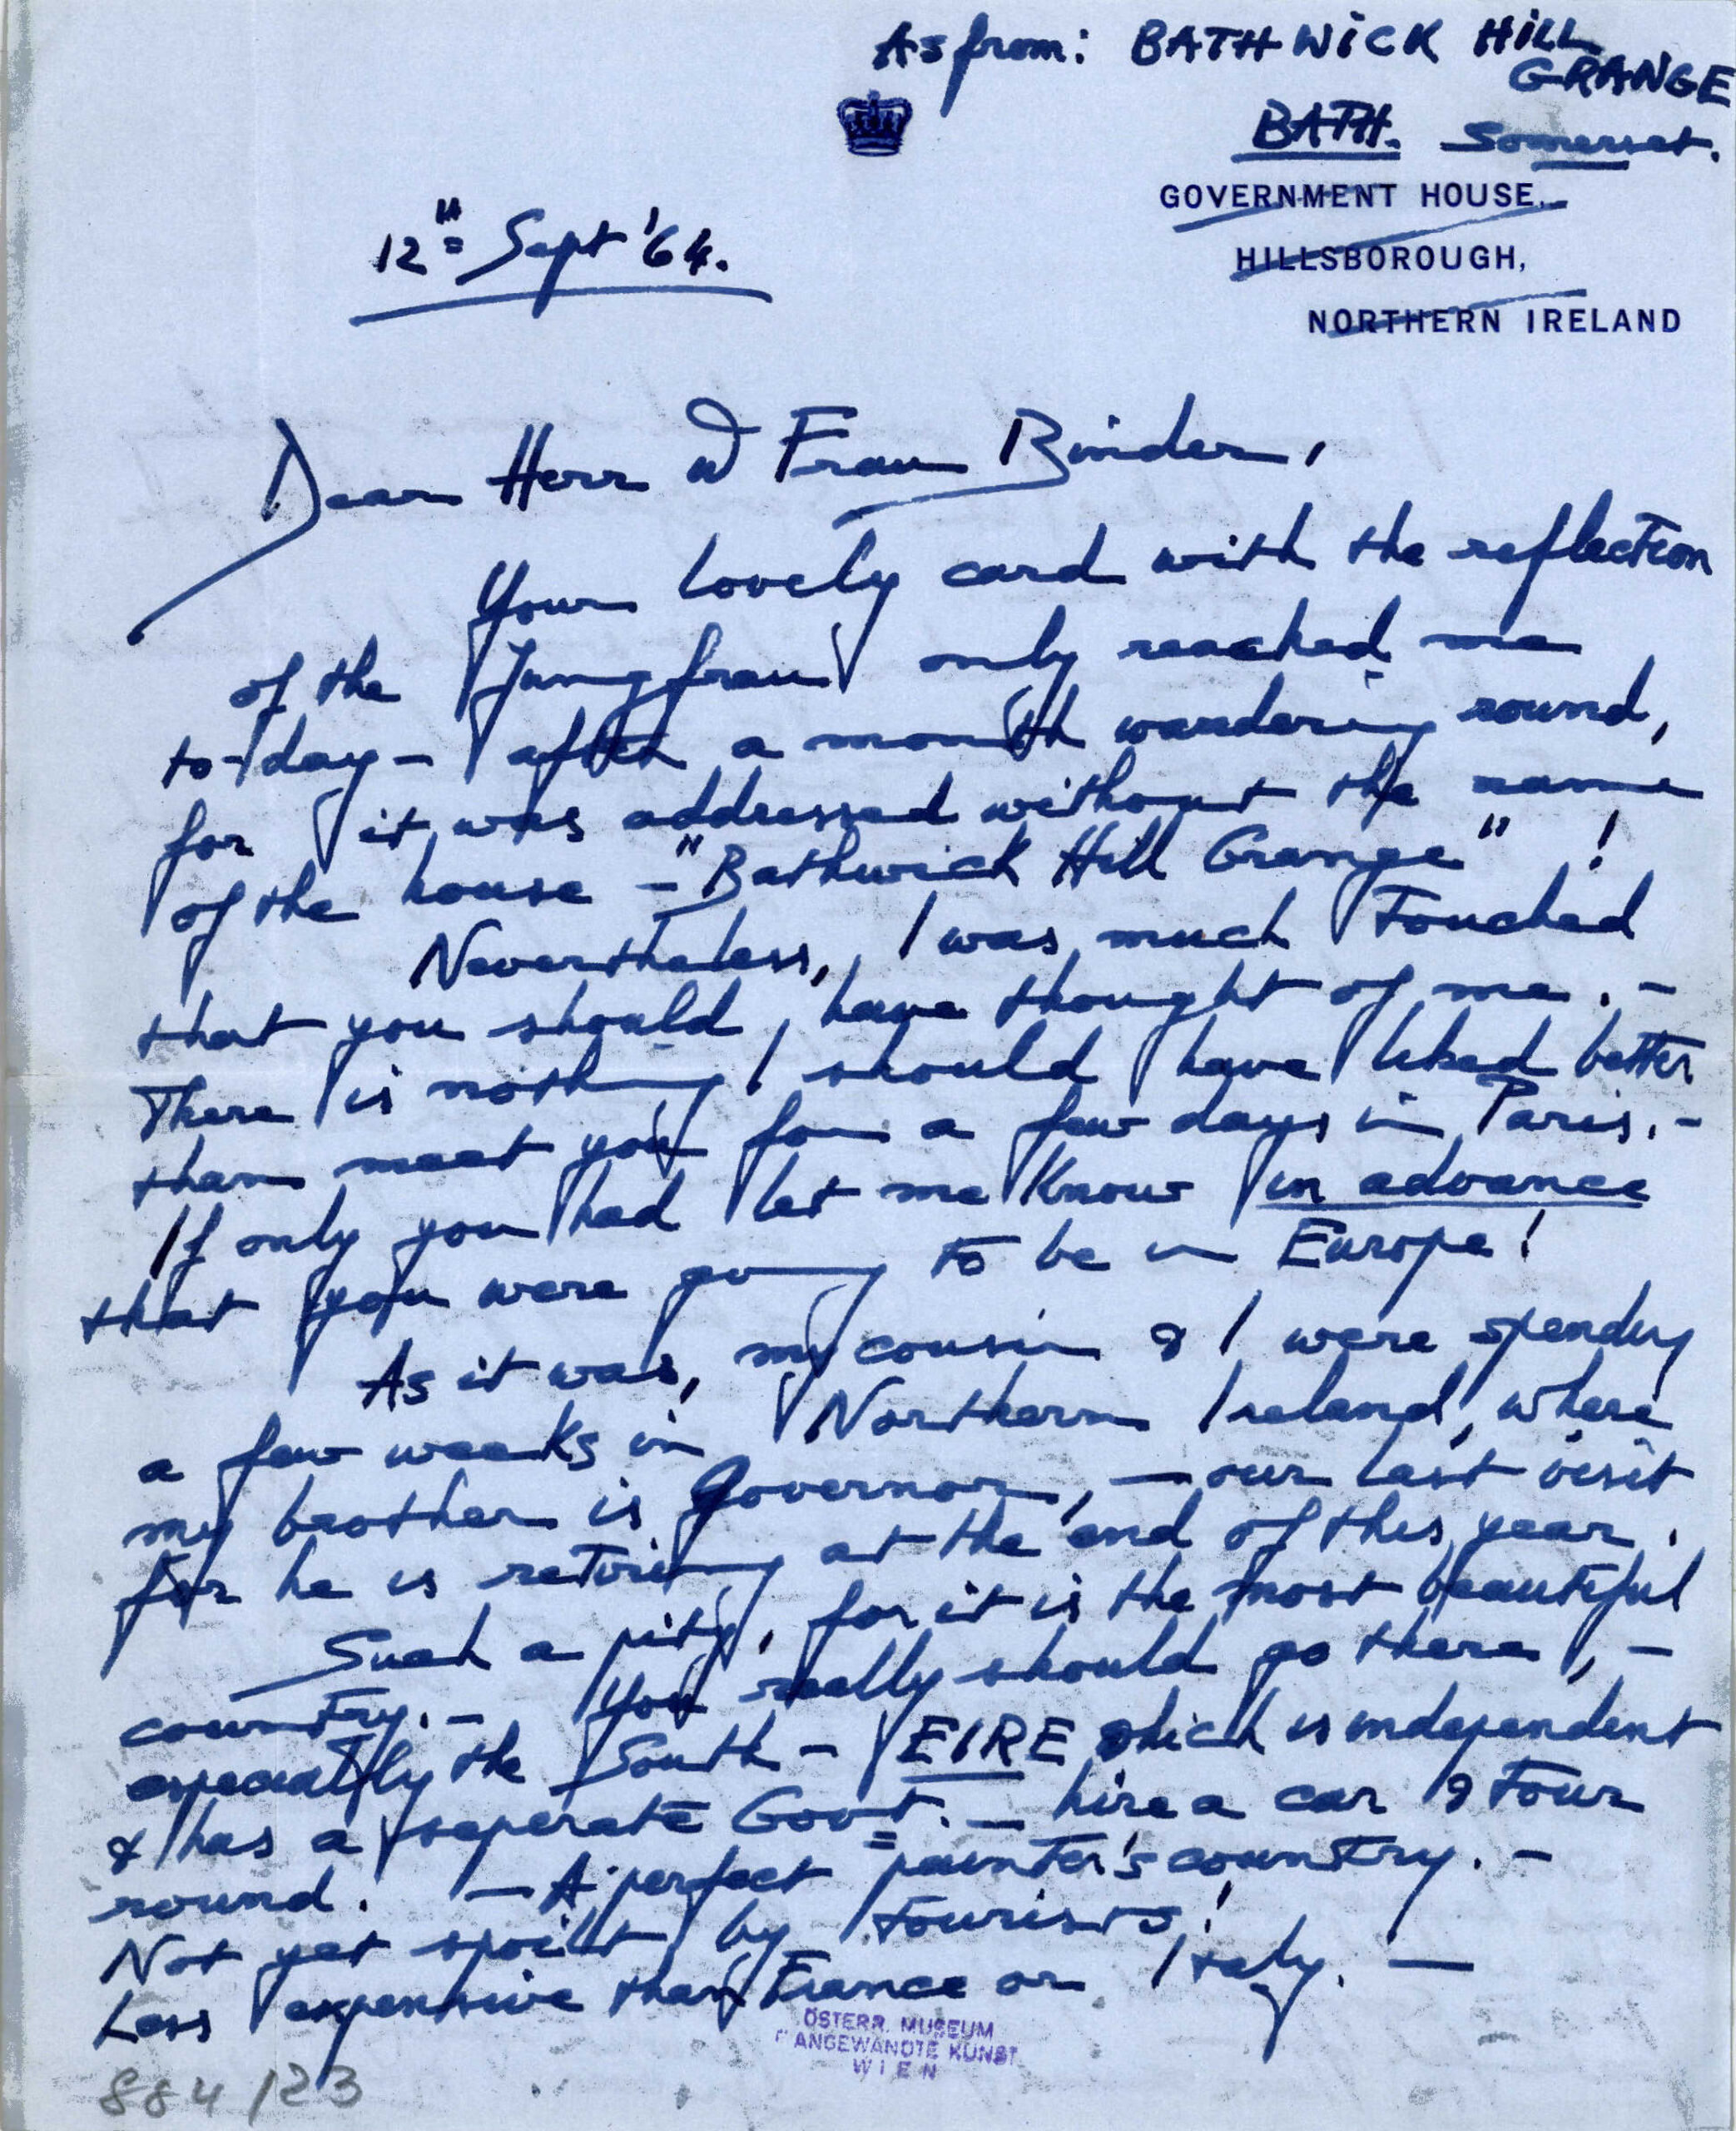 As from: BATHWICK HILL
GRANGE
BATH. Somerset.
GOVERNMENT HOUSE.
HILLSBOROUGH,
NORTHERN IRELAND
12th Sept '64.
Dear Herr & Frau Binder,
Your lovely card with the reflection
of the Jungfrau only reached me
to-day - after a month wandering round,
for it was addressed without the name
of the house - "Bathwick Hill Grange" !
Nevertheless, I was much touched
that you should have thought of me. -
There is nothing I should have liked better
than meet you for a few days in Paris. -
If only you had let me know in advance
that you were going to be in Europe!
As it was, my cousin & I were spending
a few weeks in Northern Ireland, where
my brother is Governor, - our last visit
for he is retiring at the end of this year.
Such a pity, for it is the most beautiful
country. - You really should go there, -
especially the South - EIRE which is independent
& has a seperate Govt. - hire a car & tour
round. - A perfect painter's country. -
Not yet spoilt by tourists!
Less expensive than France or Italy. -
ÖSTERR. MUSEUM
F ANGEWANDTE KUNST
WIEN
884/23